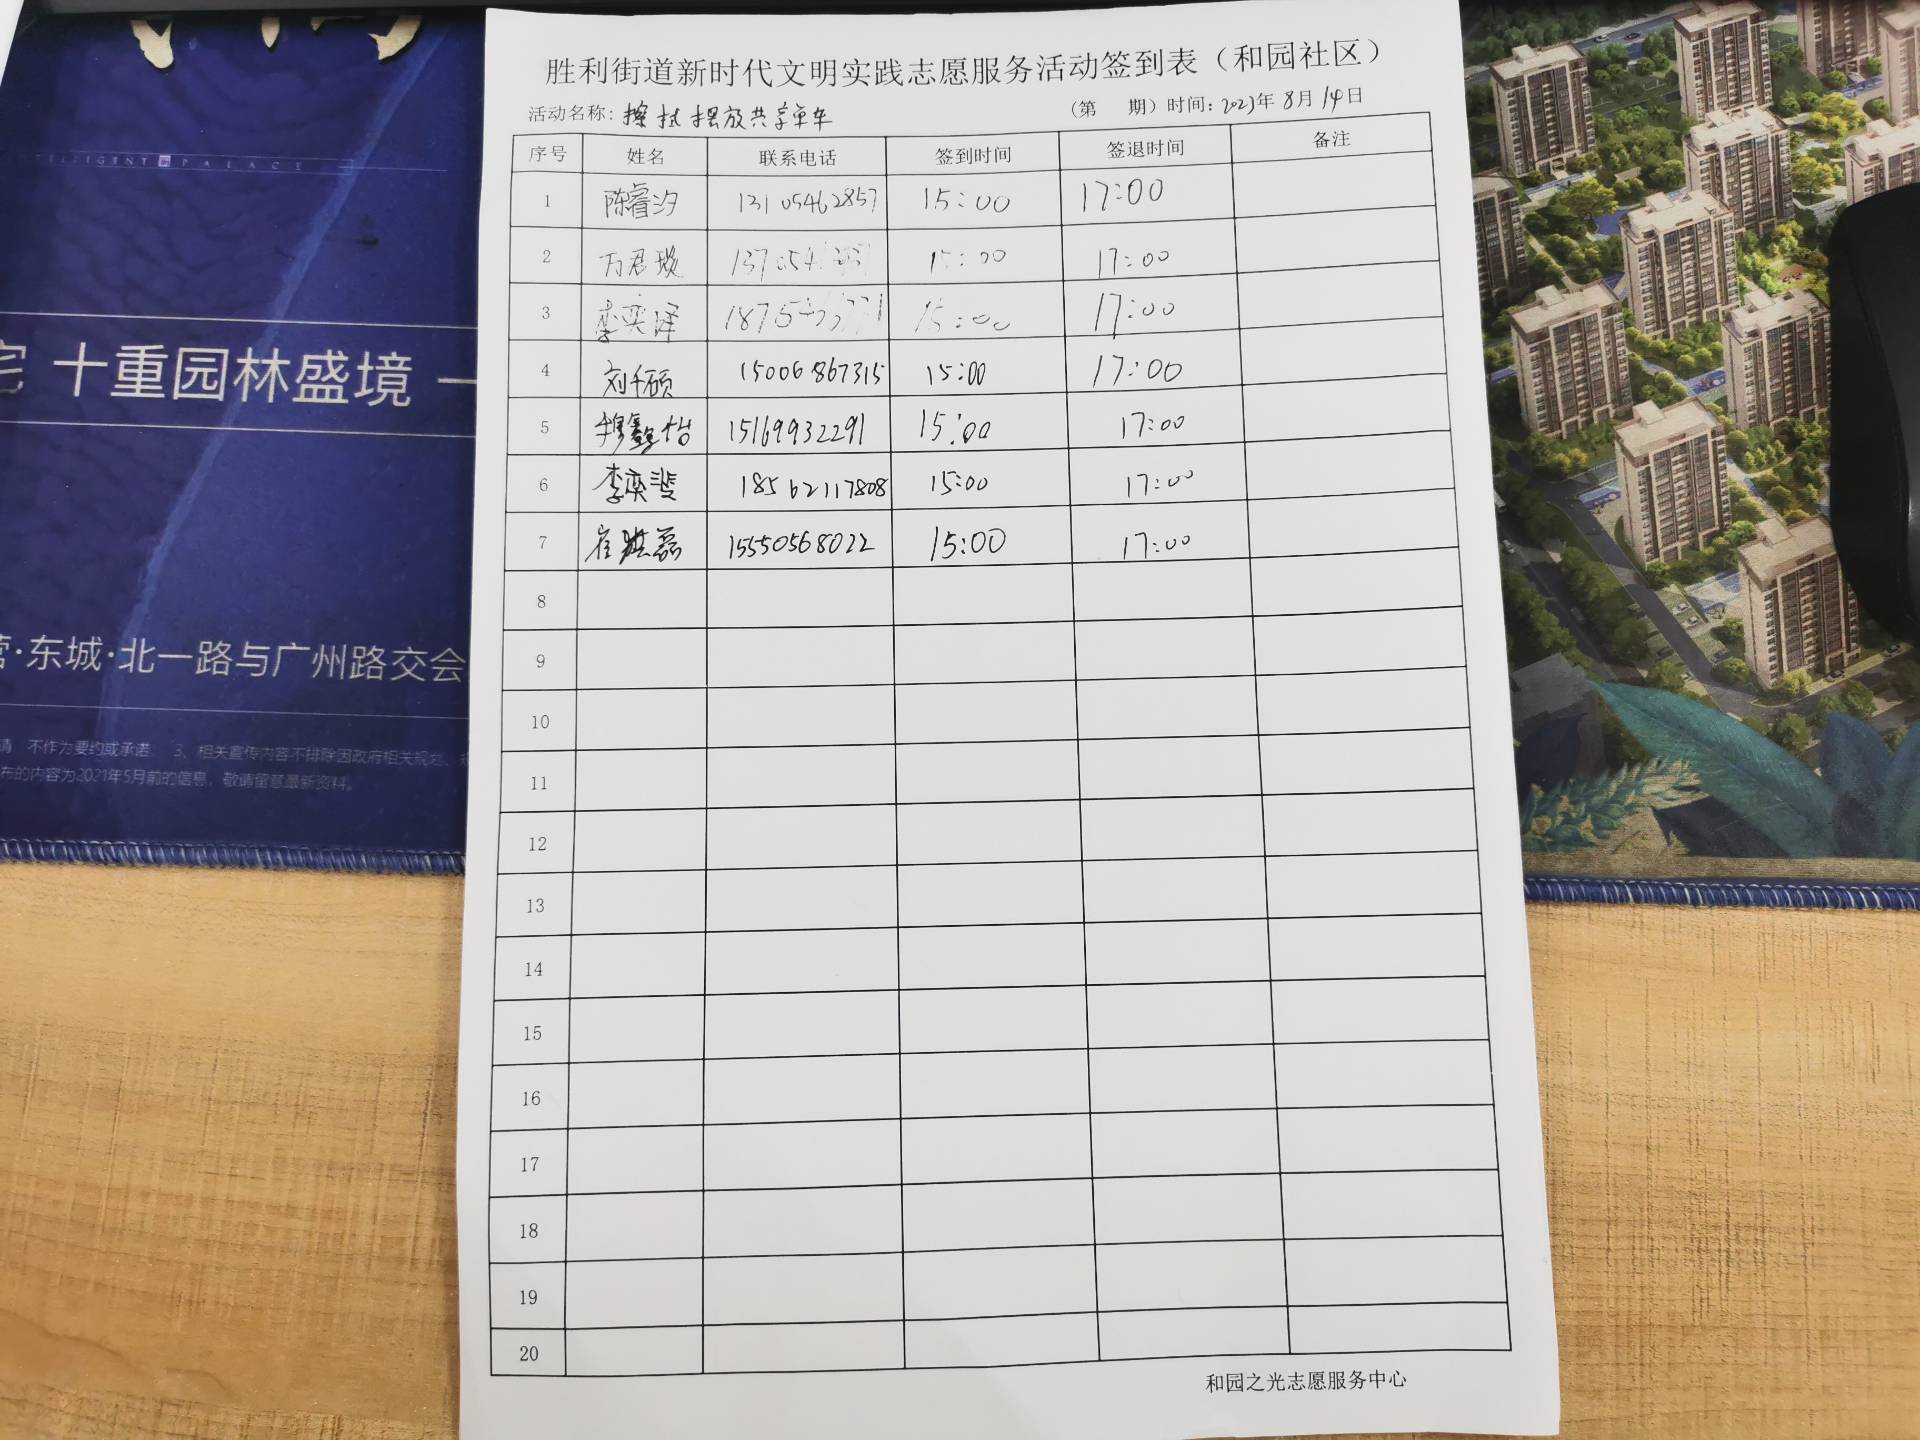 胜利街道新时代文明实践志愿服务活动签到表（和园社区）
活动名称：擦拭摆放共享单车 （第 期）时间：2023年8月14日
序号 姓名 联系电话 签到时间 签退时间 备注
1 陈睿汐 13105462857 15:00 17:00
2 万君璇 15:00 17:00
3 李奕泽 15:00 17:00
4 刘千硕 15006867315 15:00 17:00
5 穆鑫怡 15169932291 15:00 17:00
6 李奕斐 18562117808 15:00 17:00
7 崔洪磊 15550568022 15:00 17:00
8
9
10
11
12
13
14
15
16
17
18
19
20
和园之光志愿服务中心
TELLIGENT PALACE
宅 十重园林盛境 一
营·东城·北一路与广州路交会
请 不作为要约或承诺 3、相关宣传内容不排除因政府相关规划、
布的内容为2021年5月前的信息，敬请留意最新资料。